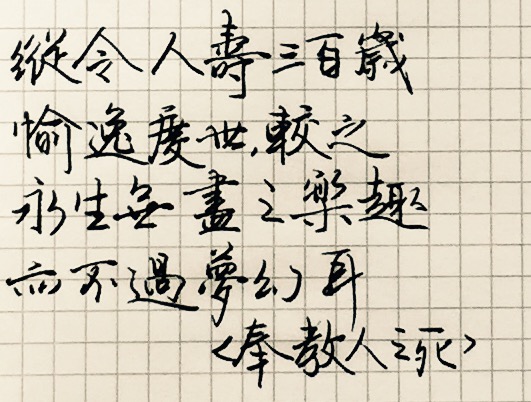 縱令人壽三百歲
愉逸度世,較之
永生無盡之樂趣
亦不過夢幻耳
<奉教人之死>